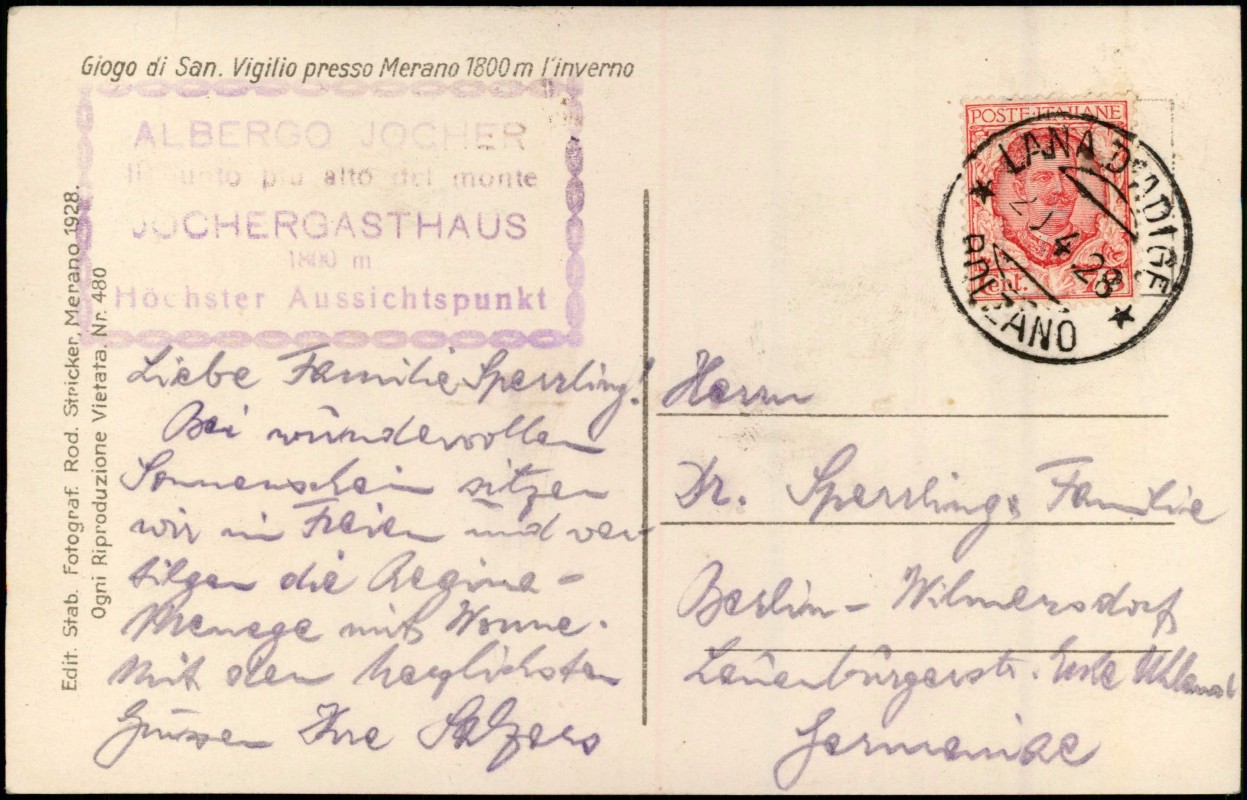 Giogo di San. Vigilio presso Merano 1800 m l'inverno
ALBERGO JOCHER
Il punto più alto del monte
JOCHERGASTHAUS
1800 m
Höchster Aussichtspunkt
Edit. Stab. Fotograf. Rod. Stricker, Merano 1928.
Ogni Riproduzione Vietata. Nr. 480
POSTE ITALIANE
Cent.
LANA D'ADIGE
4 28
BOLZANO
Liebe Familie Sperrling!
Bei wundervollen
Sonnenschein sitzen
wir im Freien und ver
tilgen die Regina-
Menage mit Wonne.
Mit den herzlichsten
Grüssen Ihre Salzers
Herrn
Dr. Sperrling & Familie
Berlin - Wilmersdorf
Lauenburgerstr. Ecke Uhland
Germaniae